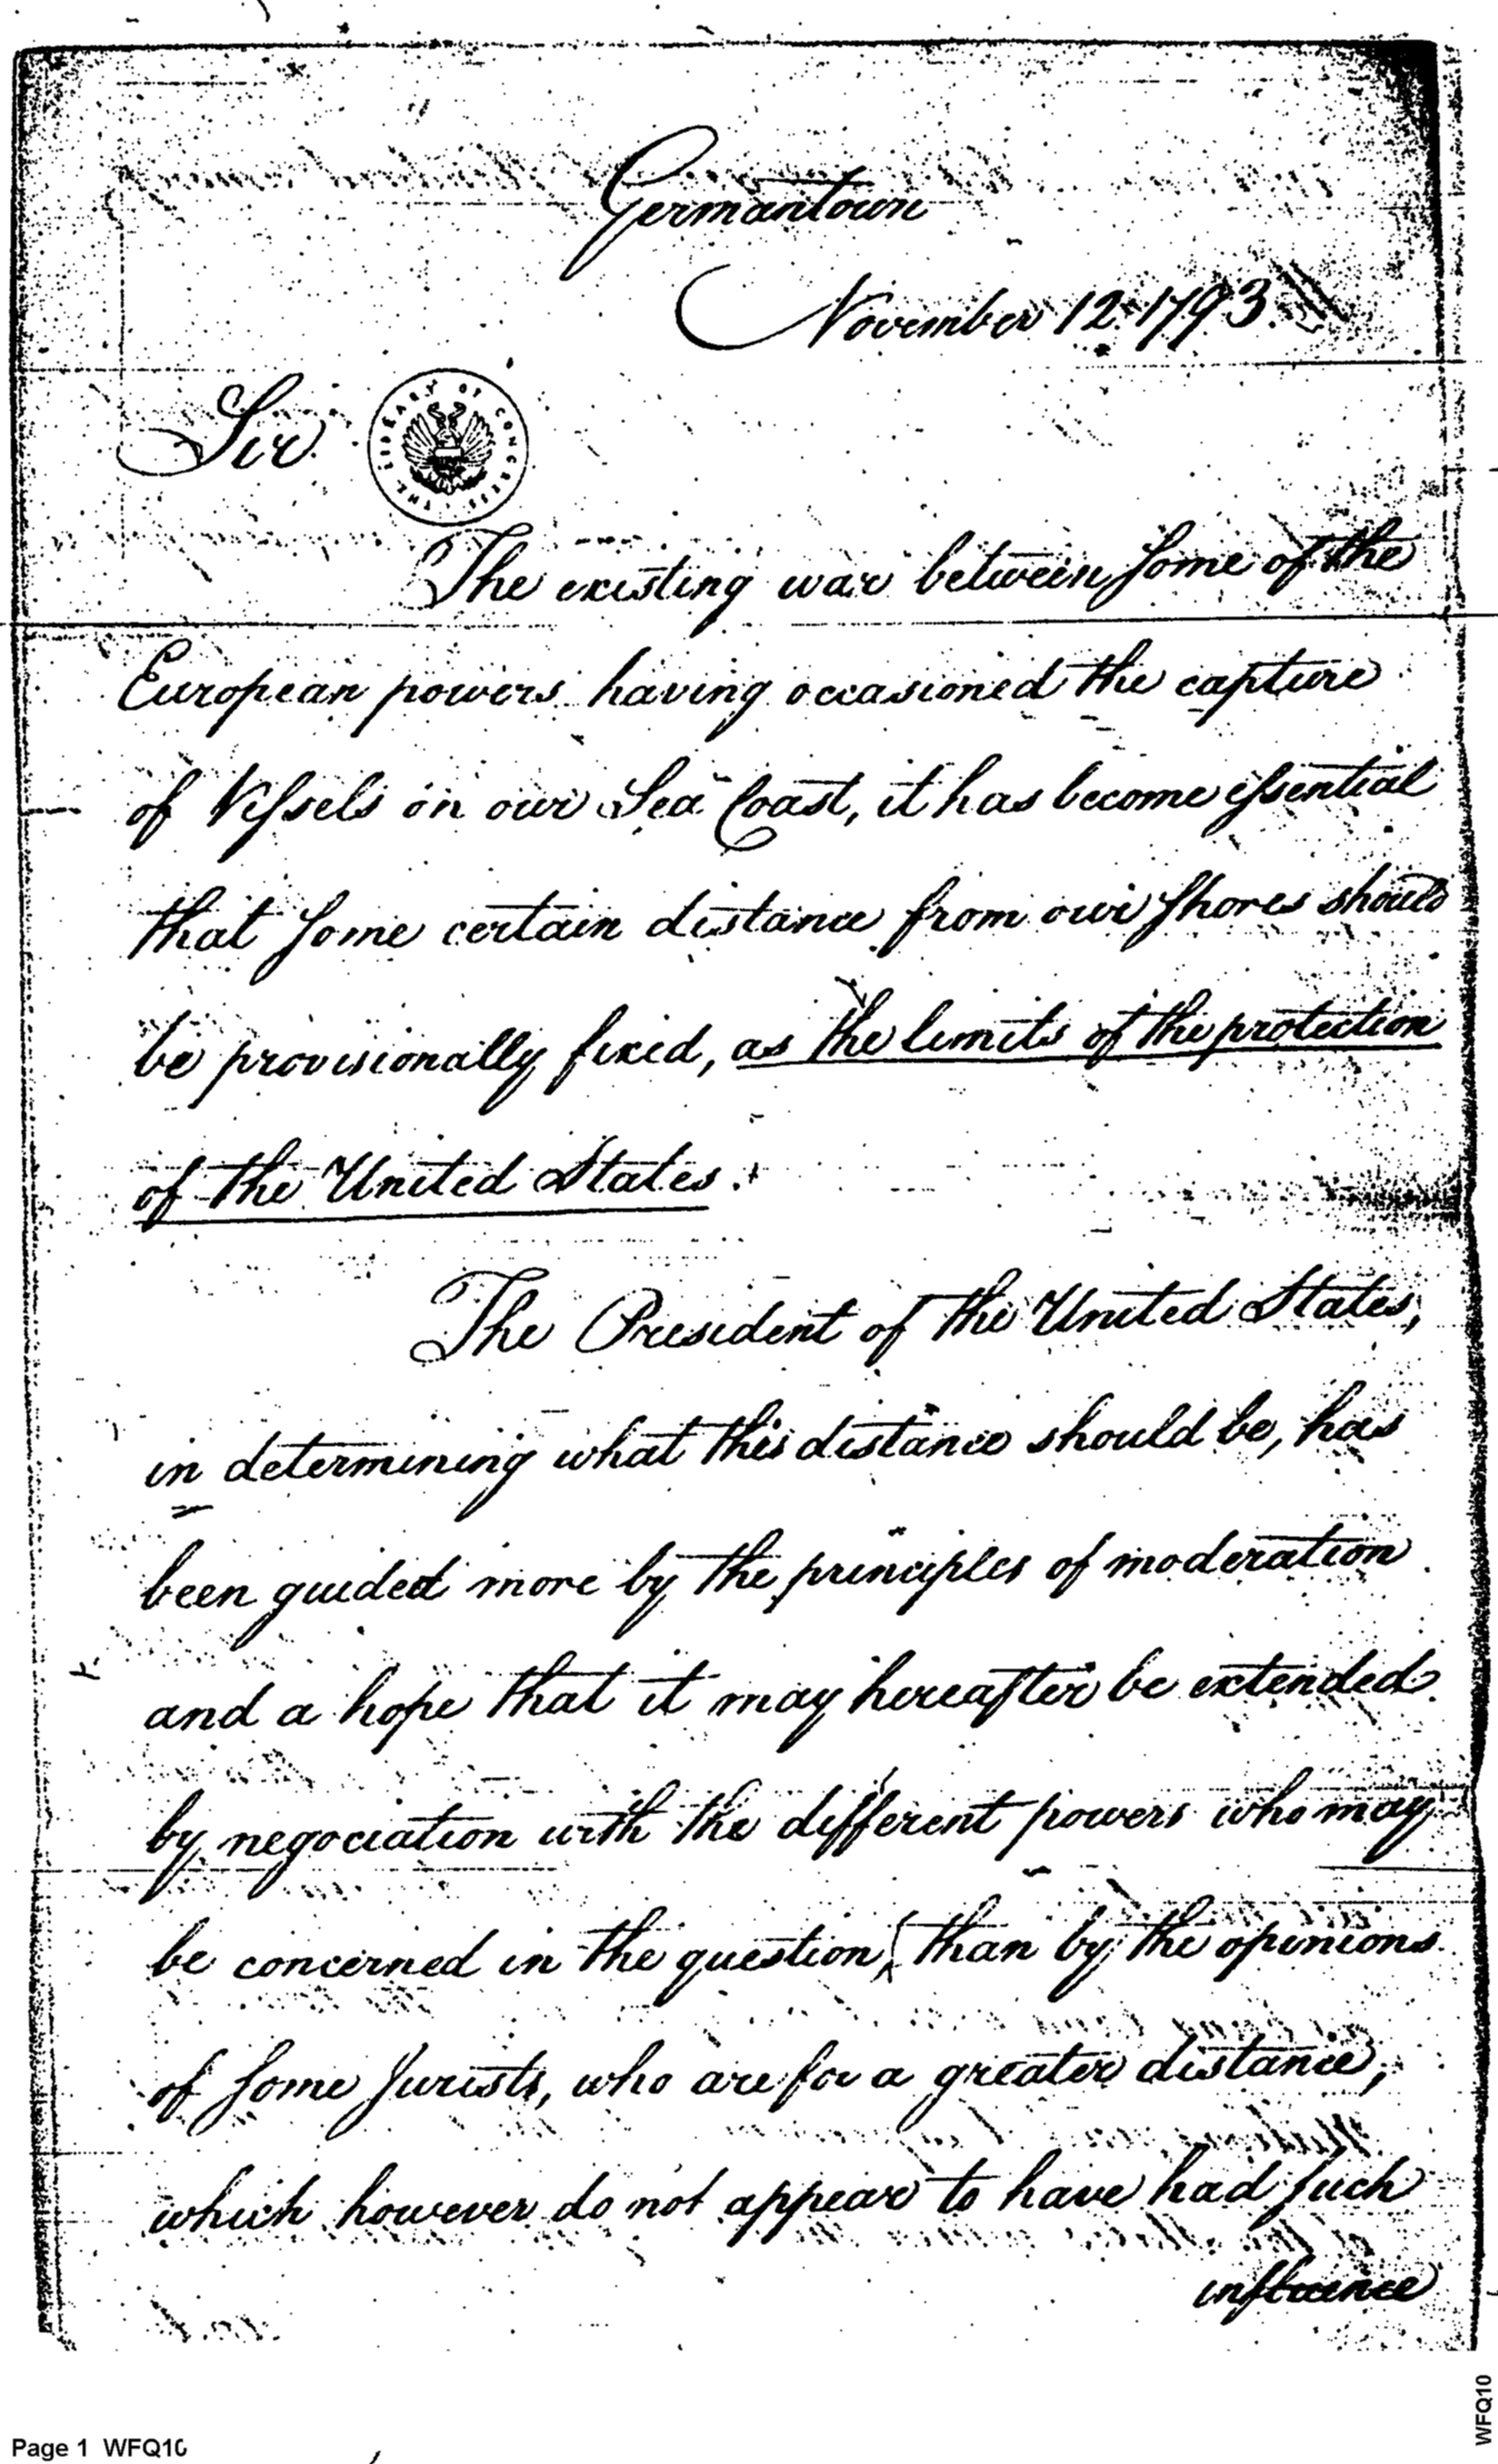 Germantown
November 12. 1793.
Sir
THE LIBRARY OF CONGRESS
The existing war between some of the
European powers having occasioned the capture
of Vessels on our Sea Coast, it has become essential
that some certain distance from our shores should
be provisionally fixed, as the limits of the protection
of the United States.
The President of the United States,
in determining what this distance should be, has
been guided more by the principles of moderation
and a hope that it may hereafter be extended
by negociation with the different powers who may
be concerned in the question, than by the opinions
of some Jurists, who are for a greater distance,
which however do not appear to have had such
influence
Page 1 WFQ10
WFQ10